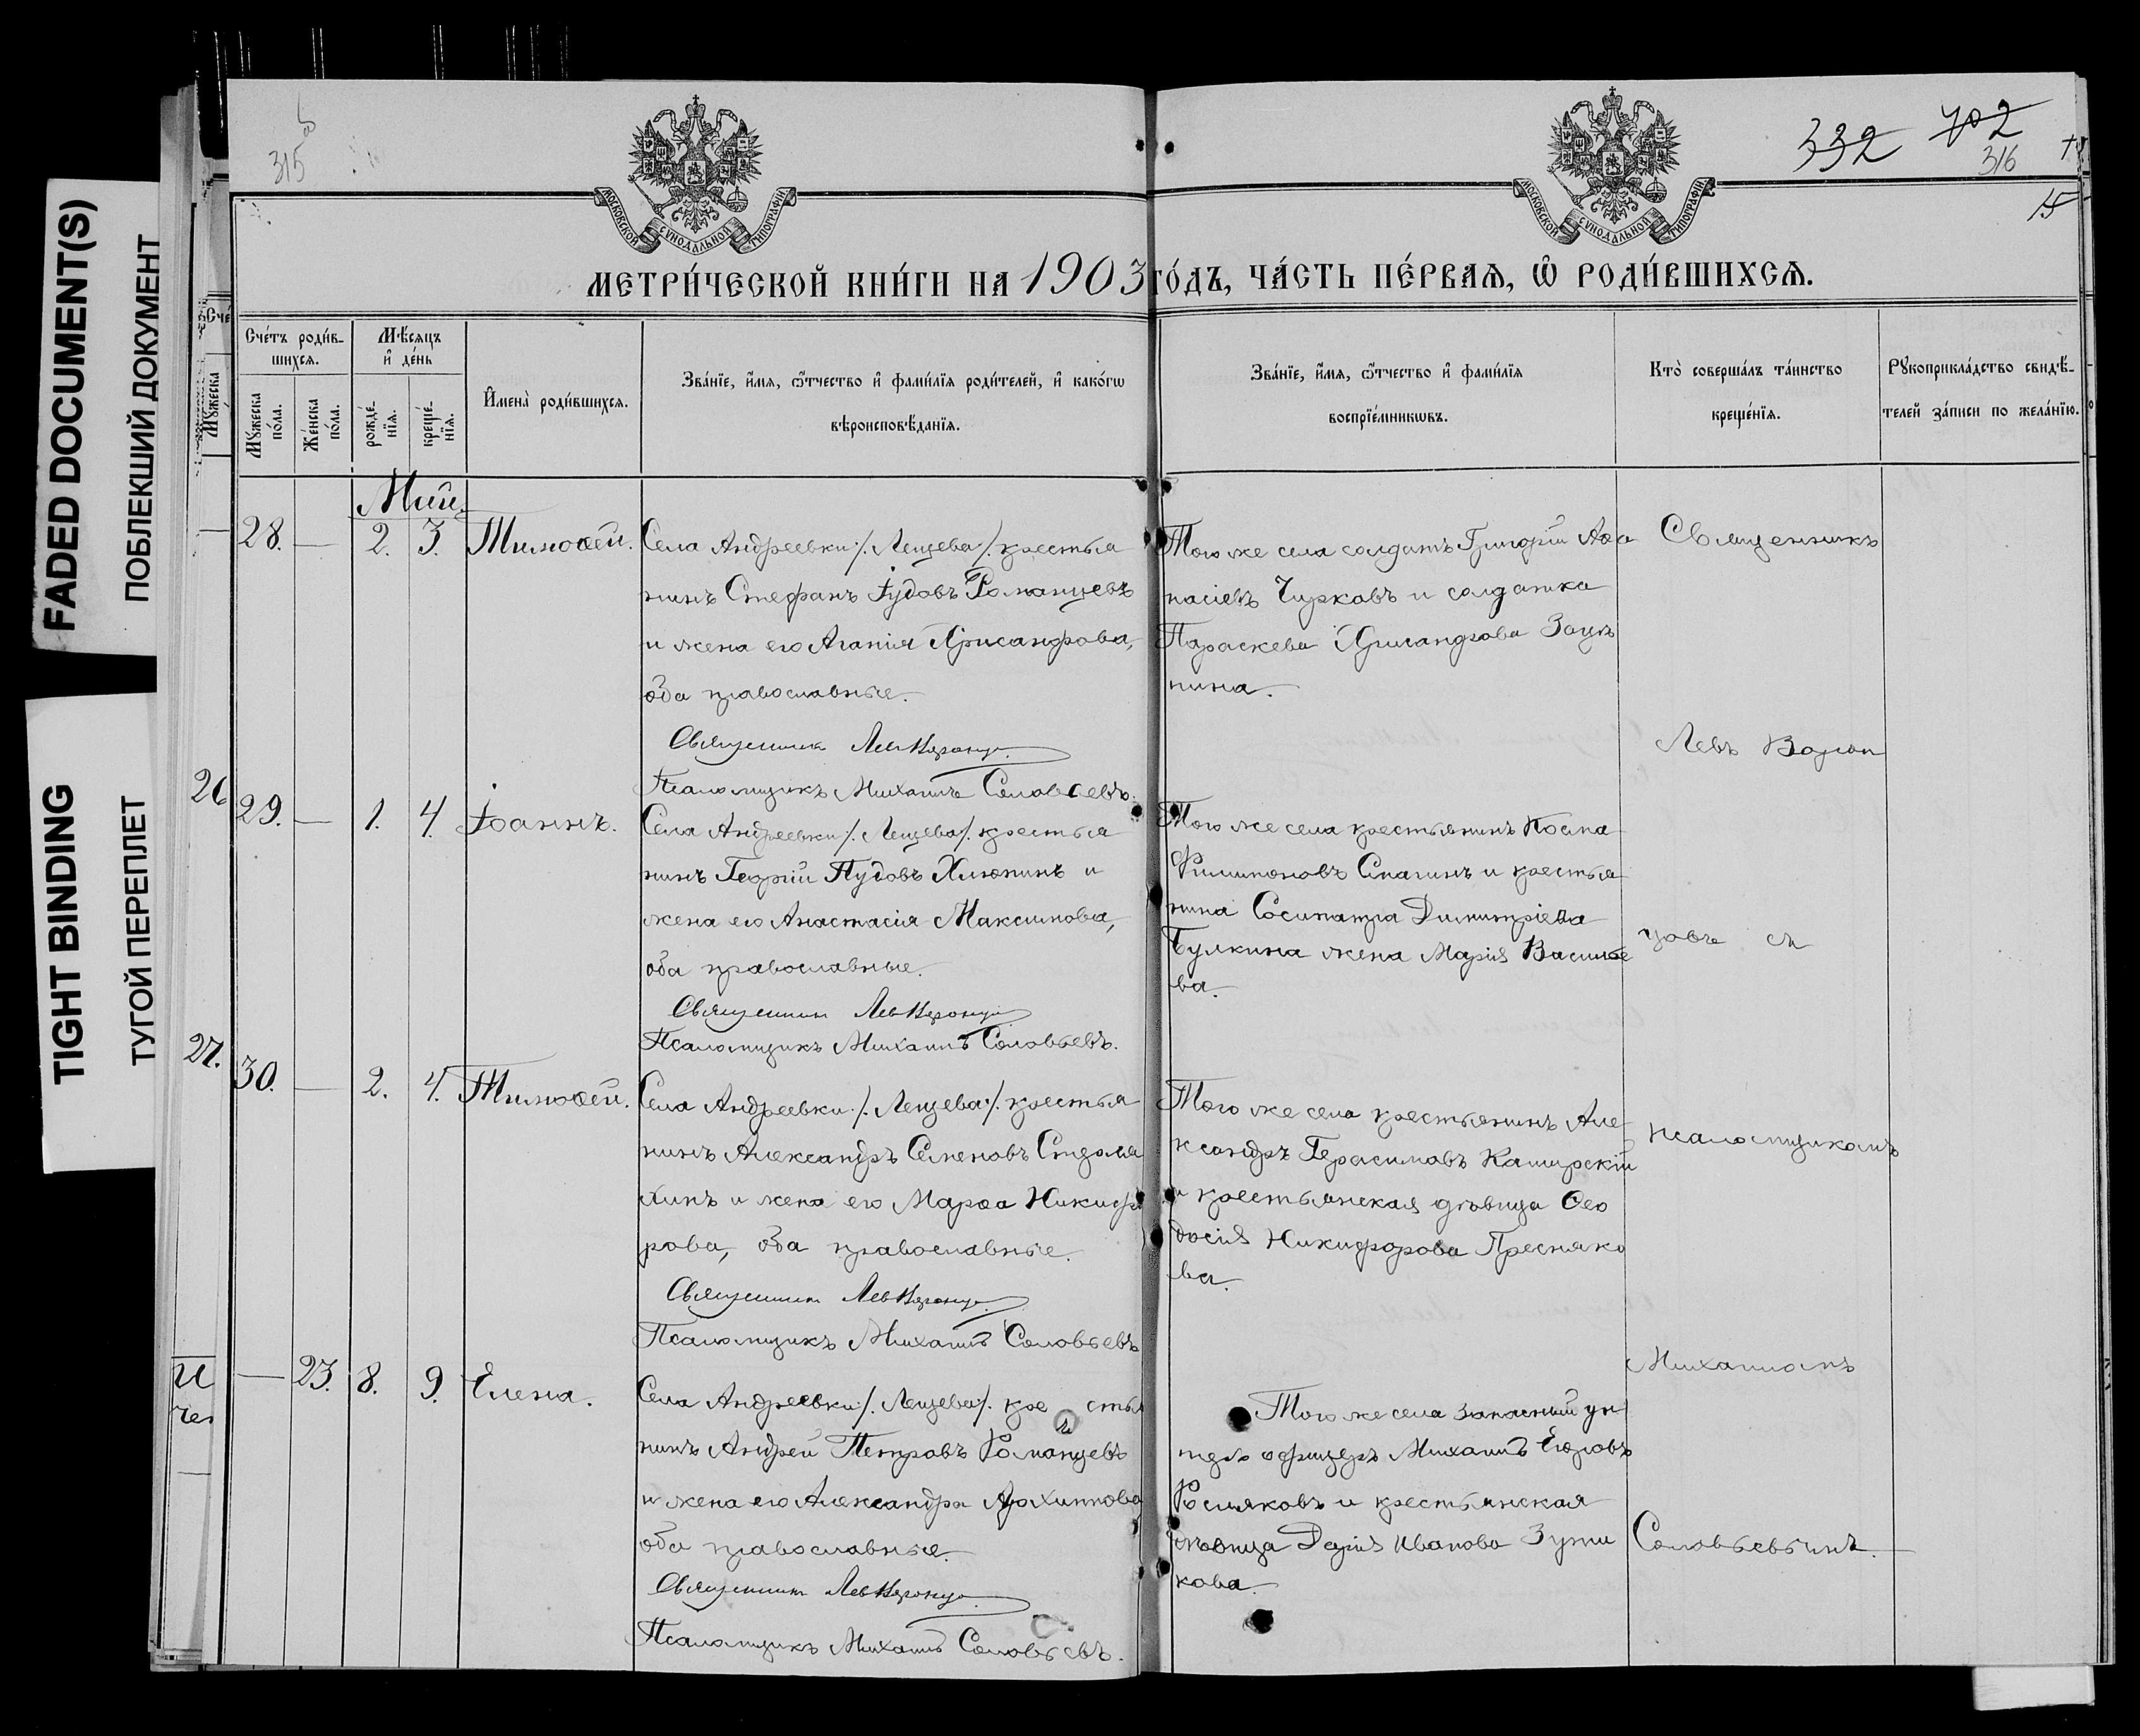 FADED DOCUMENT(S)
ПОБЛЕКШИЙ ДОКУМЕНТ
TIGHT BINDING
ТУГОЙ ПЕРЕПЛЕТ
315
332
702
316
15
МОСКОВСКОЙ СѴНОДАЛЬНОЙ ТИПОГРАФІИ
МОСКОВСКОЙ СѴНОДАЛЬНОЙ ТИПОГРАФІИ
МЕТРИ́ЧЕСКОЙ КНИ́ГИ НА 1903 ГО́ДЪ, ЧА́СТЬ ПЕ́РВАЯ, Ѡ҆ РОДИ́ВШИХСЯ.
Сче́тъ роди́в-
шихся.
Мѣ́сяцъ
и҆ де́нь
Мꙋ́жеска
по́ла.
Же́нска
по́ла.
рожде́-
нїя.
креще́-
нїя.
И҆мена̀ роди́вшихся.
Зва́нїе, и҆́мя, ѻ҆́тчество и҆ фами́лїя роди́телей, и҆ како́гѡ
вѣроисповѣ́данїя.
Зва́нїе, и҆́мя, ѻ҆́тчество и҆ фами́лїя
воспрїе́мникѡвъ.
Кто̀ соверша́лъ та́инство
креще́нїя.
Рꙋкоприкла́дство свидѣ́-
телей за́писи по жела́нїю.
Май.
28. — 2. 3. Тимоѳей.
Села Андреевки /. Лещева /. крестья
нинъ Стефанъ Іудовъ Романцевъ
и жена его Агапія Хрисанфова,
оба православные.
Священникъ Лев Воронцо
Псаломщикъ Михаилъ Соловьевъ.
Того же села солдатъ Григорій Аѳа
насіевъ Чурковъ и солдатка
Параскева
нина.
Священникъ
Левъ Ворон
26
29. — 1. 4. Іоаннъ.
Села Андреевки /. Лещева /. крестья
нинъ Георгій Іудовъ Хлюпинъ и
жена его Анастасія Максимова,
оба православные.
Священник Лев Воронцо
Псаломщикъ Михаилъ Соловьевъ.
Того же села крестьянинъ Косма
Филимоновъ Спагинъ и крестья
нина Сосипатра Димитріева
Булкина жена Марія Василье
ва.
цовъ съ
27.
30. — 2. 4. Тимоѳей.
Села Андреевки /. Лещева /. крестья
нинъ Александръ Семеновъ
хинъ и жена его Марѳа Никифо
рова, оба православные.
Священник Лев Воронцо
Псаломщикъ Михаилъ Соловьевъ
Того же села крестьянинъ Але
ксандръ Герасимовъ Каширскій
и крестьянская дѣвица Ѳео
досія Никифорова Пресняко
ва.
псаломщикомъ
— 23. 8. 9. Елена.
Села Андреевки /. Лещева /. кре стья
нинъ Андрей Петровъ Романцевъ
и жена его Александра Архиппова
оба православные.
Священник Лев Воронцо
Псаломщикъ Михаилъ Соловьевъ.
Того же села запасный ун
теръ офицеръ Михаилъ Егоровъ
Росляковъ и крестьянская
дѣвица Дарія Иванова
кова.
Михаиломъ
Соловьевымъ.